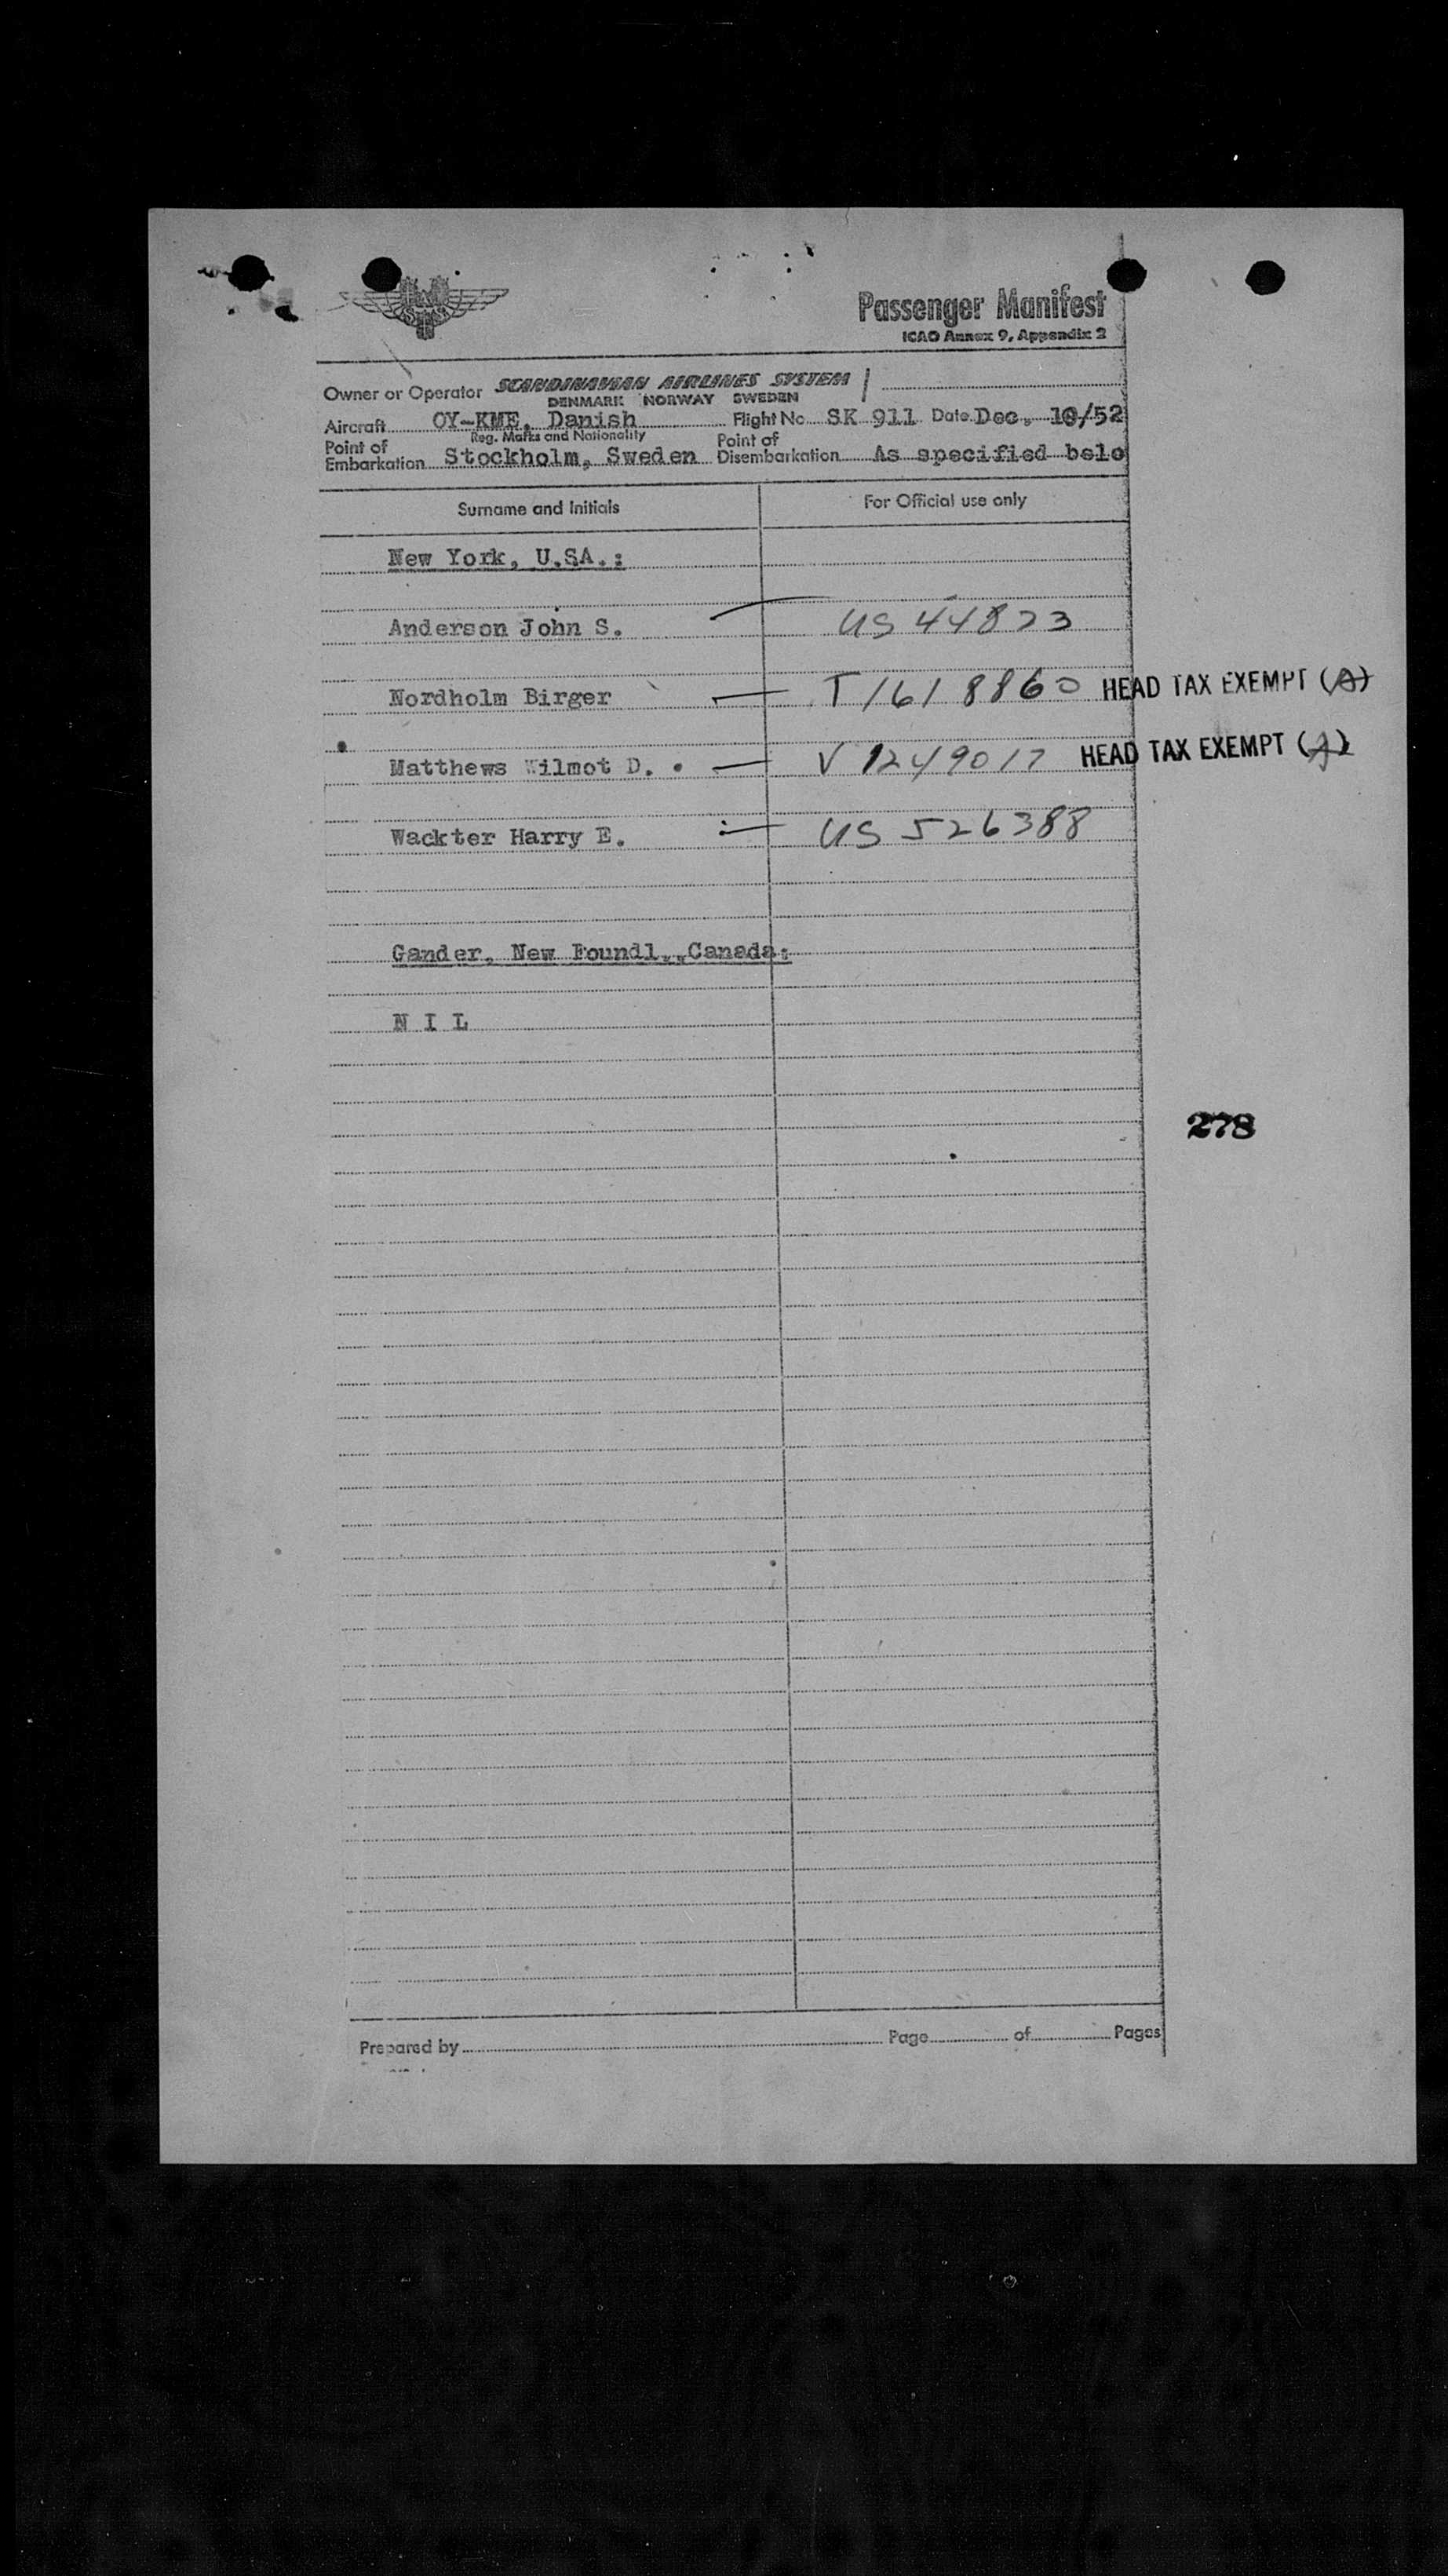 SAS
Passenger Manifest
ICAO Annex 9, Appendix 2
Owner or Operator SCANDINAVIAN AIRLINES SYSTEM
DENMARK NORWAY SWEDEN
Aircraft OY-KME, Danish Flight No. SK 911 Date Dec. 10/52
Reg. Marks and Nationality
Point of Embarkation Stockholm, Sweden Point of Disembarkation As specified belo
Surname and Initials For Official use only
New York, U.SA.:
Anderson John S. US 44823
Nordholm Birger T 1618860 HEAD TAX EXEMPT (A)
Matthews Wilmot D. V 1249017 HEAD TAX EXEMPT (A)
Wackter Harry E. US 526388
Gander, New Foundl.,,Canada:
N I L
278
Prepared by Page of Pages